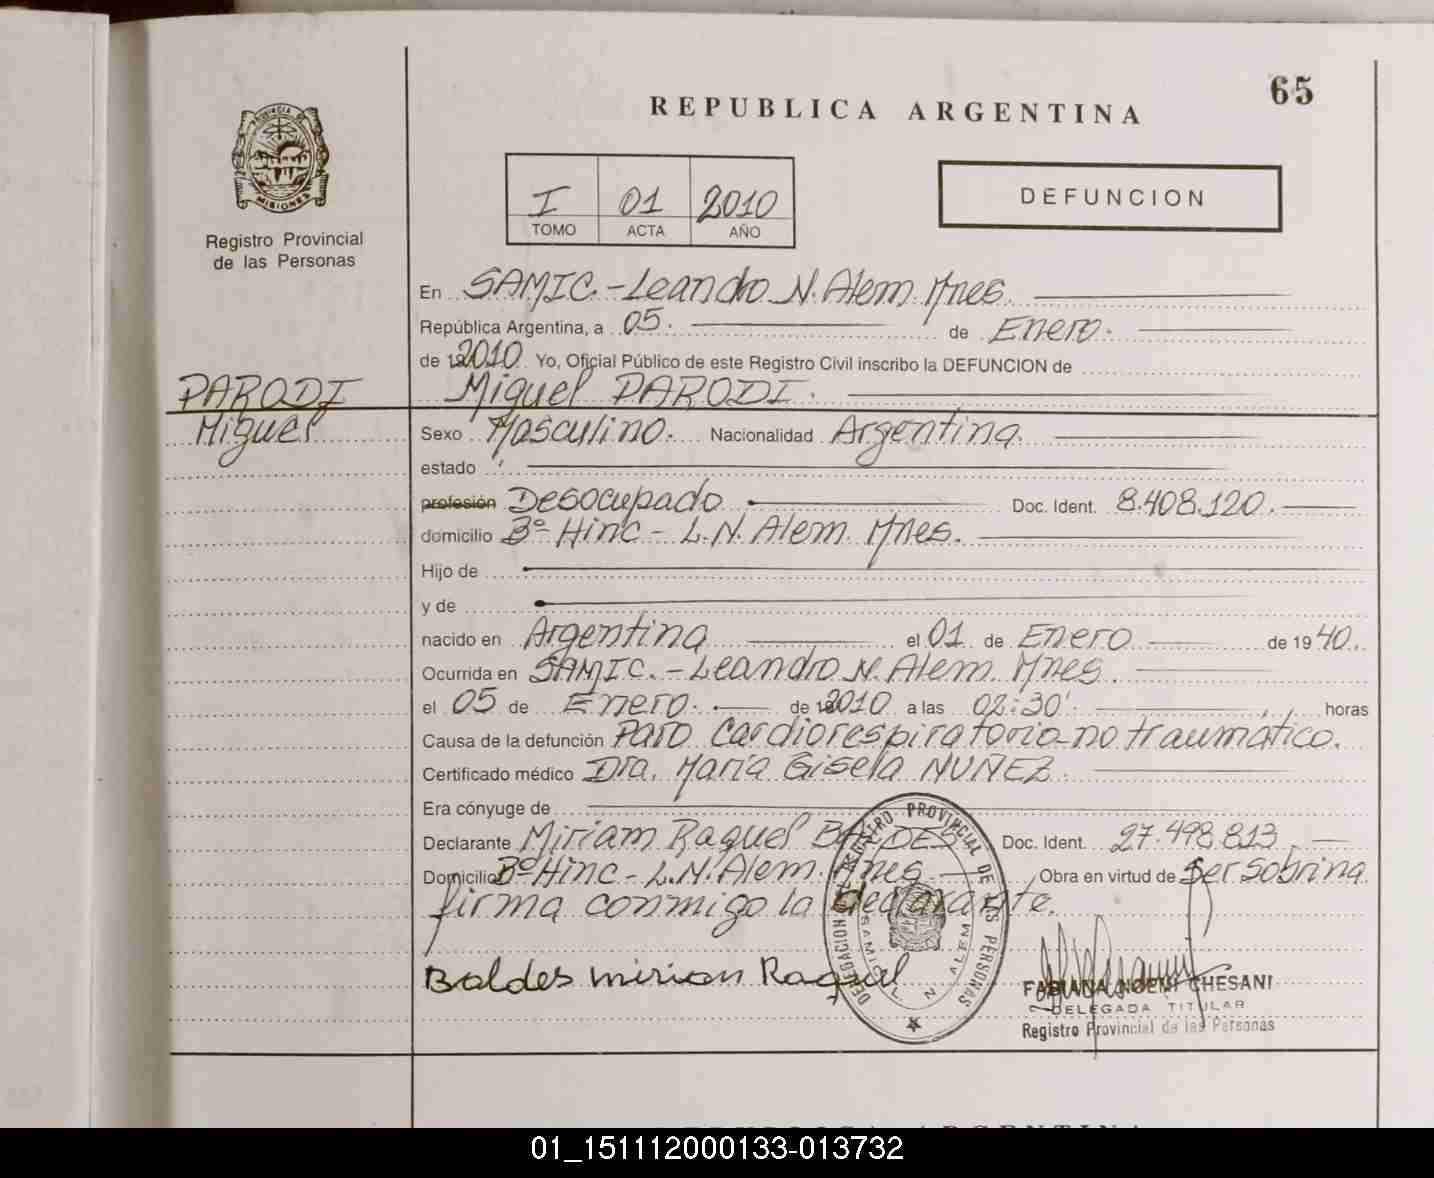 65
REPUBLICA ARGENTINA
PROVINCIA DE
MISIONES
Registro Provincial
de las Personas
I 01 2010
TOMO ACTA AÑO
DEFUNCION
En SAMIC.-Leandro N. Alem. Mnes.
República Argentina, a 05. de Enero.
de 2010 Yo, Oficial Público de este Registro Civil inscribo la DEFUNCION de
PARODI
Miguel
Miguel PARODI.
Sexo Masculino. Nacionalidad Argentina.
estado
profesión Desocupado Doc. Ident. 8.408.120.
domicilio Bº Hinc - L.N. Alem. Mnes.
Hijo de
y de
nacido en Argentina el 01 de Enero de 1940.
Ocurrida en SAMIC.-Leandro N. Alem. Mnes.
el 05 de Enero. de 2010 a las 02:30' horas
Causa de la defunción Paro Cardiorespiratorio-no traumático.
Certificado médico Dra. María Gisela NUÑEZ.
Era cónyuge de
Declarante Miriam Raquel BALDES Doc. Ident. 27.498.813.
Domicilio Bº Hinc - L.N. Alem. Mnes Obra en virtud de Ser Sobrina.
firma conmigo la declarante.
Baldes mirian Raquel
DELEGACION DEL REGISTRO PROVINCIAL DE LAS PERSONAS
SAMIC L. N. ALEM
FABIANA NOEMI CHESANI
DELEGADA TITULAR
Registro Provincial de las Personas
REPUBLICA ARGENTINA
01_151112000133-013732